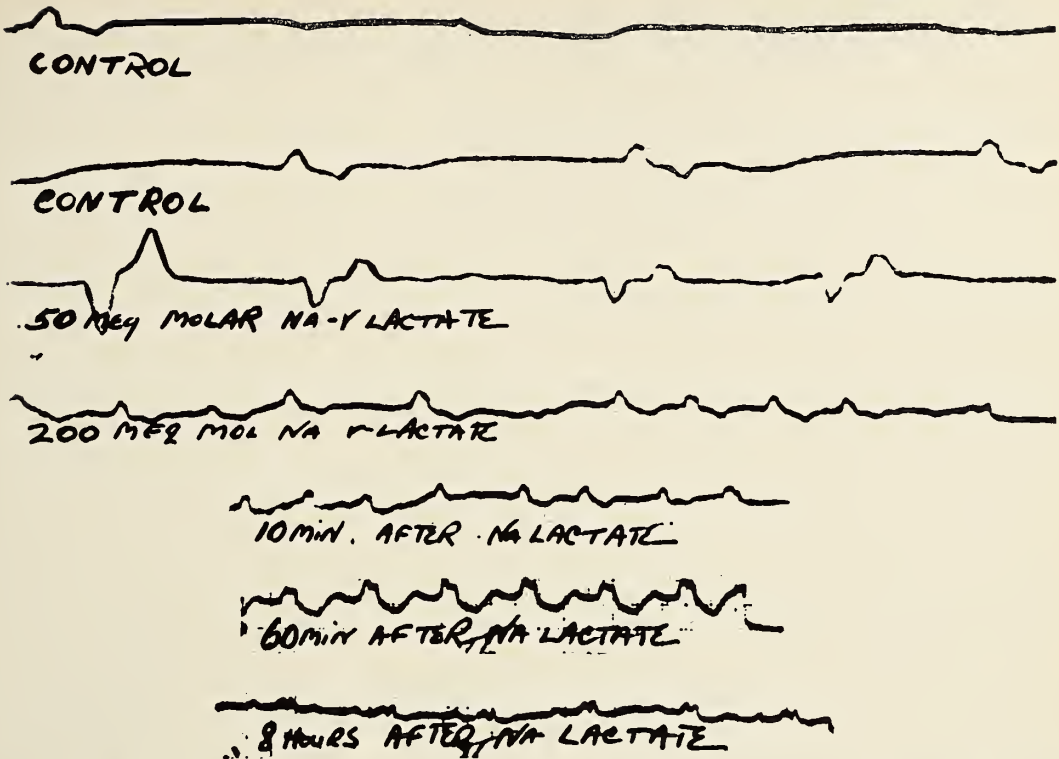 CONTROL
CONTROL
.50 MEq MOLAR NA-r LACTATE
200 MEq MOL NA r-LACTATE
10 MIN. AFTER NA LACTATE
60 MIN AFTER NA LACTATE
8 HOURS AFTER NA LACTATE